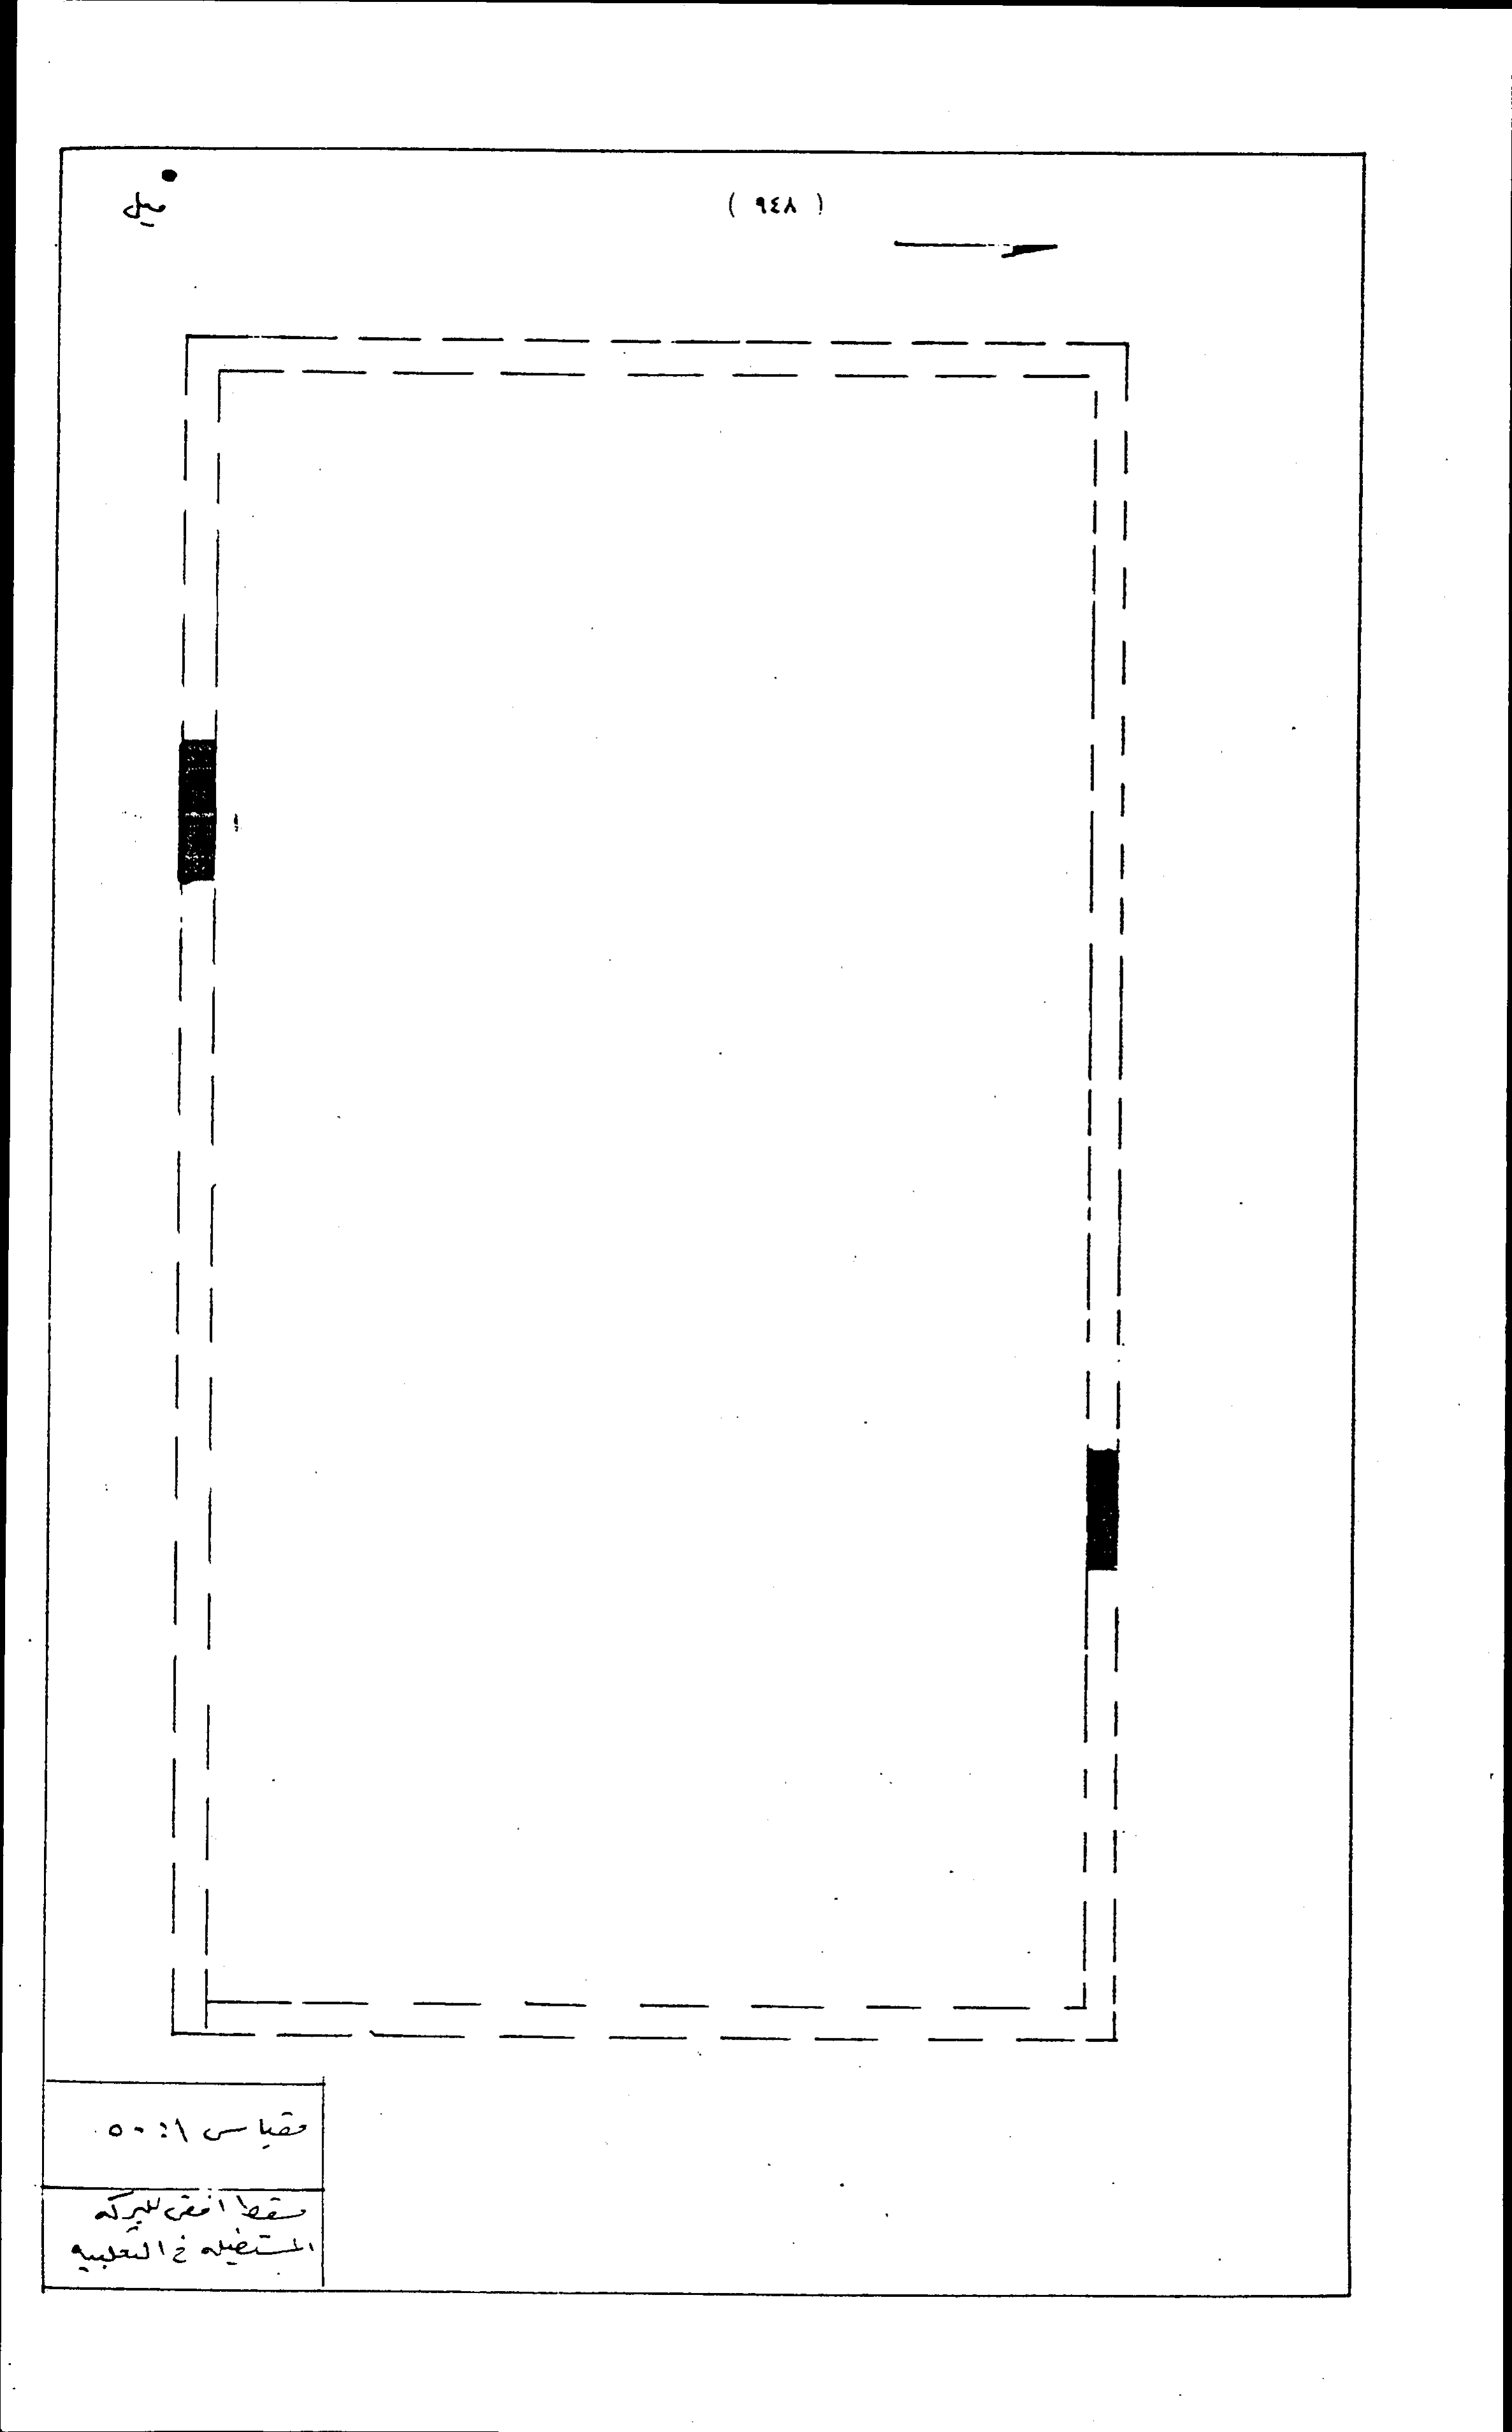 ( ٩٤٨ )
ميل
مقياس ١:٥٠
مسقط افقى للبركه
المستطيله في الثعلبيه